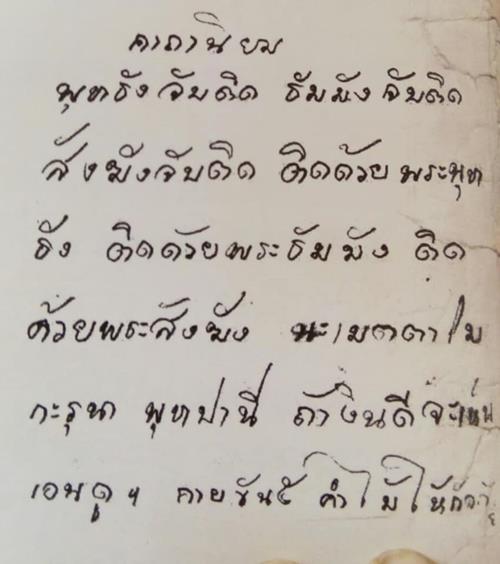 คาถานิยม
พุทธังจับติด ธัมมังจับติด
สังฆังจับติด ติดด้วยพระพุท
ธัง ติดด้วยพระธัมมัง ติด
ด้วยพระสังฆัง นะเมตตาโม
กะรุนา พุทปานี
เอนดูฯ กายขันธ์